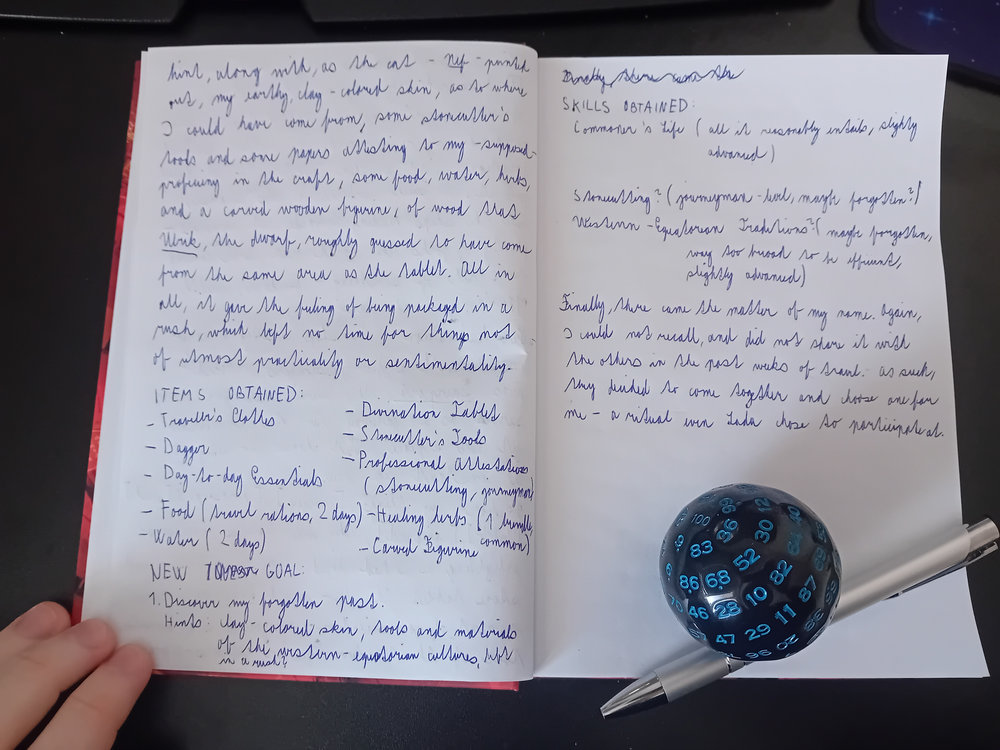 hint, along with, as the cat - Nef - pointed
out, my earthy, clay-colored skin, as to where
I could have come from, some stonecutter's
tools and some papers attesting to my -supposed-
proficiency in the craft, some food, water, herbs,
and a carved wooden figurine, of wood that
Ulrik, the dwarf, roughly guessed to have come
from the same area as the tablet. All in
all, it gave the feeling of being packaged in a
rush, which left no time for things not
of utmost practicality or sentimentality.
ITEMS OBTAINED:
- Traveller's Clothes
- Dagger
- Day-to-day Essentials
- Food (travel rations, 2 days)
- Water (2 days)
- Divination Tablet
- Stonecutter's Tools
- Professional Attestations
(stonecutting, journeyman)
- Healing herbs (1 bundle,
common)
- Carved Figurine
NEW GOAL:
1. Discover my forgotten past.
Hints: clay-colored skin, tools and materials
of the western-equatorian cultures, left
in a rush?
Finally, there came the
SKILLS OBTAINED:
Commoner's Life (all it reasonably entails, slightly
advanced)
Stonecutting? (journeyman-level, maybe forgotten?)
Western-Equatorian Traditions? (maybe forgotten,
way too broad to be efficient,
slightly advanced)
Finally, there came the matter of my name. Again,
I could not recall, and did not share it with
the others in the past weeks of travel. As such,
they decided to come together and choose one for
me - a ritual even Lada chose to participate at.
100 36 30 12
83 52
86 68 82
46 23 10 87
47 29 11